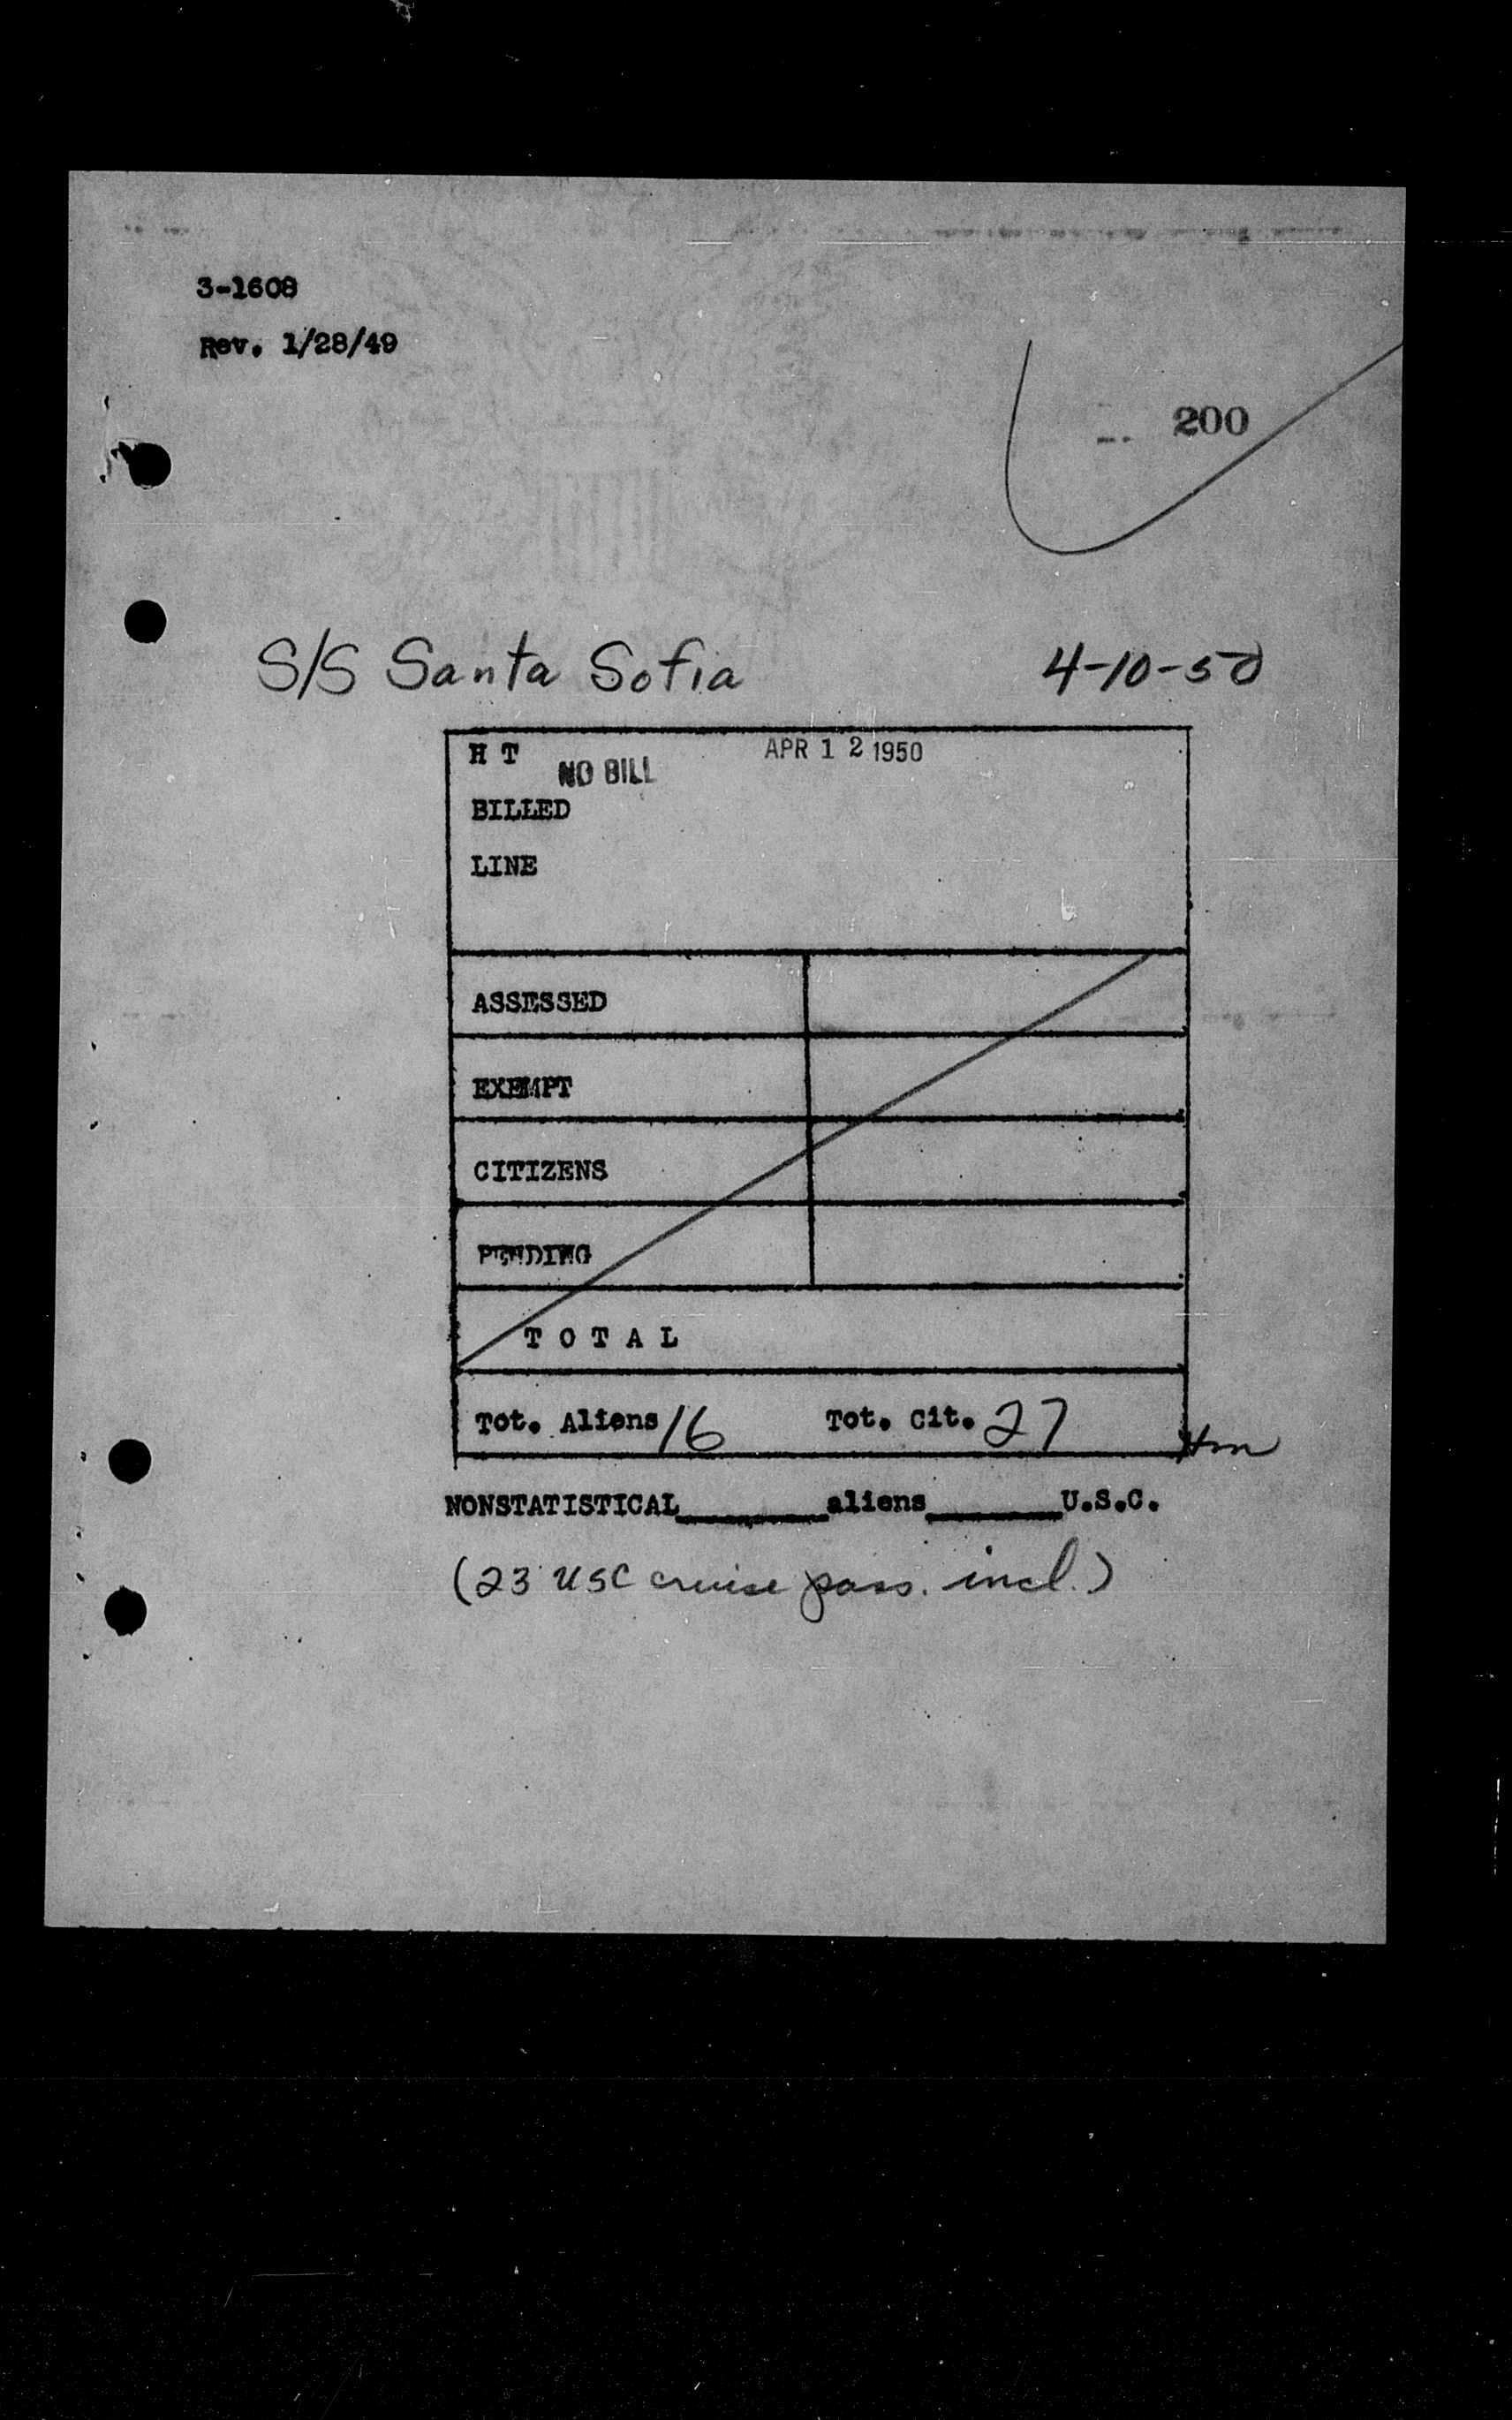 3-1608
Rev. 1/28/49
200
S/S Santa Sofia 4-10-50
H T NO BILL APR 12 1950
BILLED
LINE
ASSESSED
EXEMPT
CITIZENS
PENDING
T O T A L
Tot. Aliens 16 Tot. Cit. 27
NONSTATISTICAL________aliens_______U.S.C.
(23 USC cruise pass. incl.)